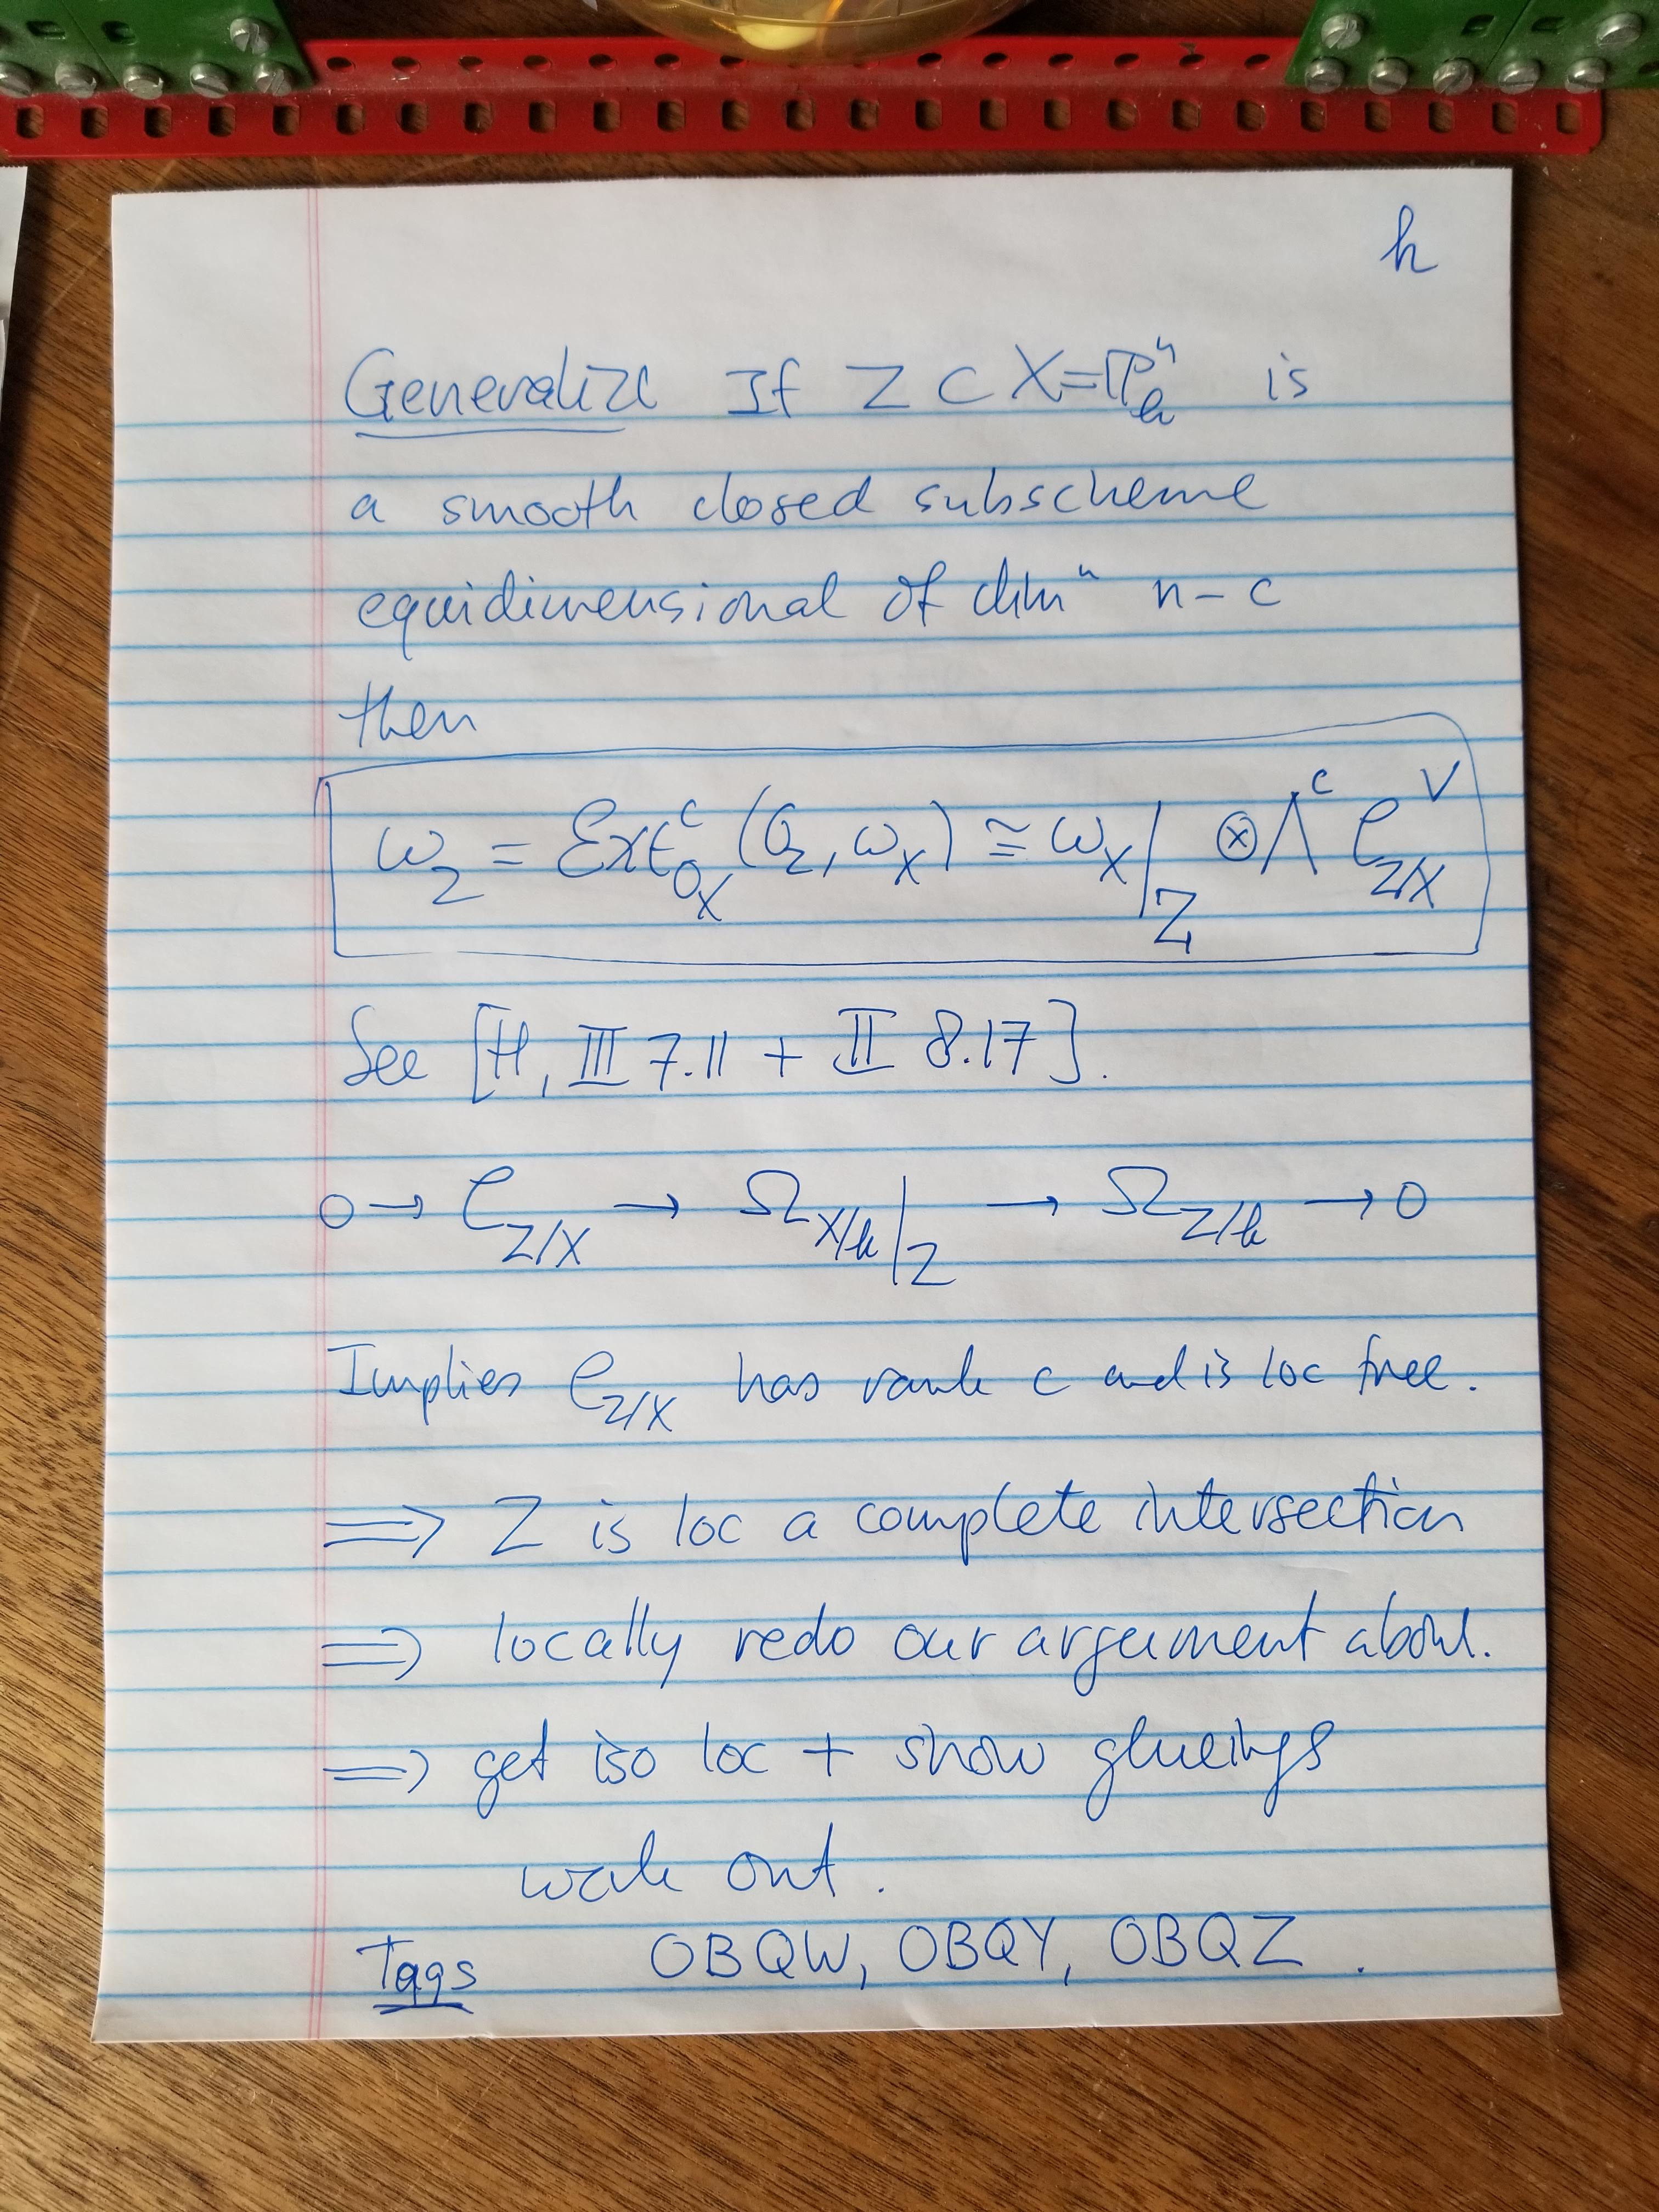 h
Generalize If Z ⊂ X = ℙ^n_k is
a smooth closed subscheme
equidimensional of dim^n n-c
then
ω_Z = Ext^c_{O_X}(O_Z, ω_X) ≅ ω_X|_Z ⊗ Λ^c C_{Z/X}^∨
See [H, III 7.11 + II 8.17].
0 → C_{Z/X} → Ω_{X/k}|_Z → Ω_{Z/k} → 0
Implies C_{Z/X} has rank c and is loc free.
⟹ Z is loc a complete intersection
⟹ locally redo our argument above.
⟹ get iso loc + show glueings
work out.
Tags 0BQW, 0BQY, 0BQZ.